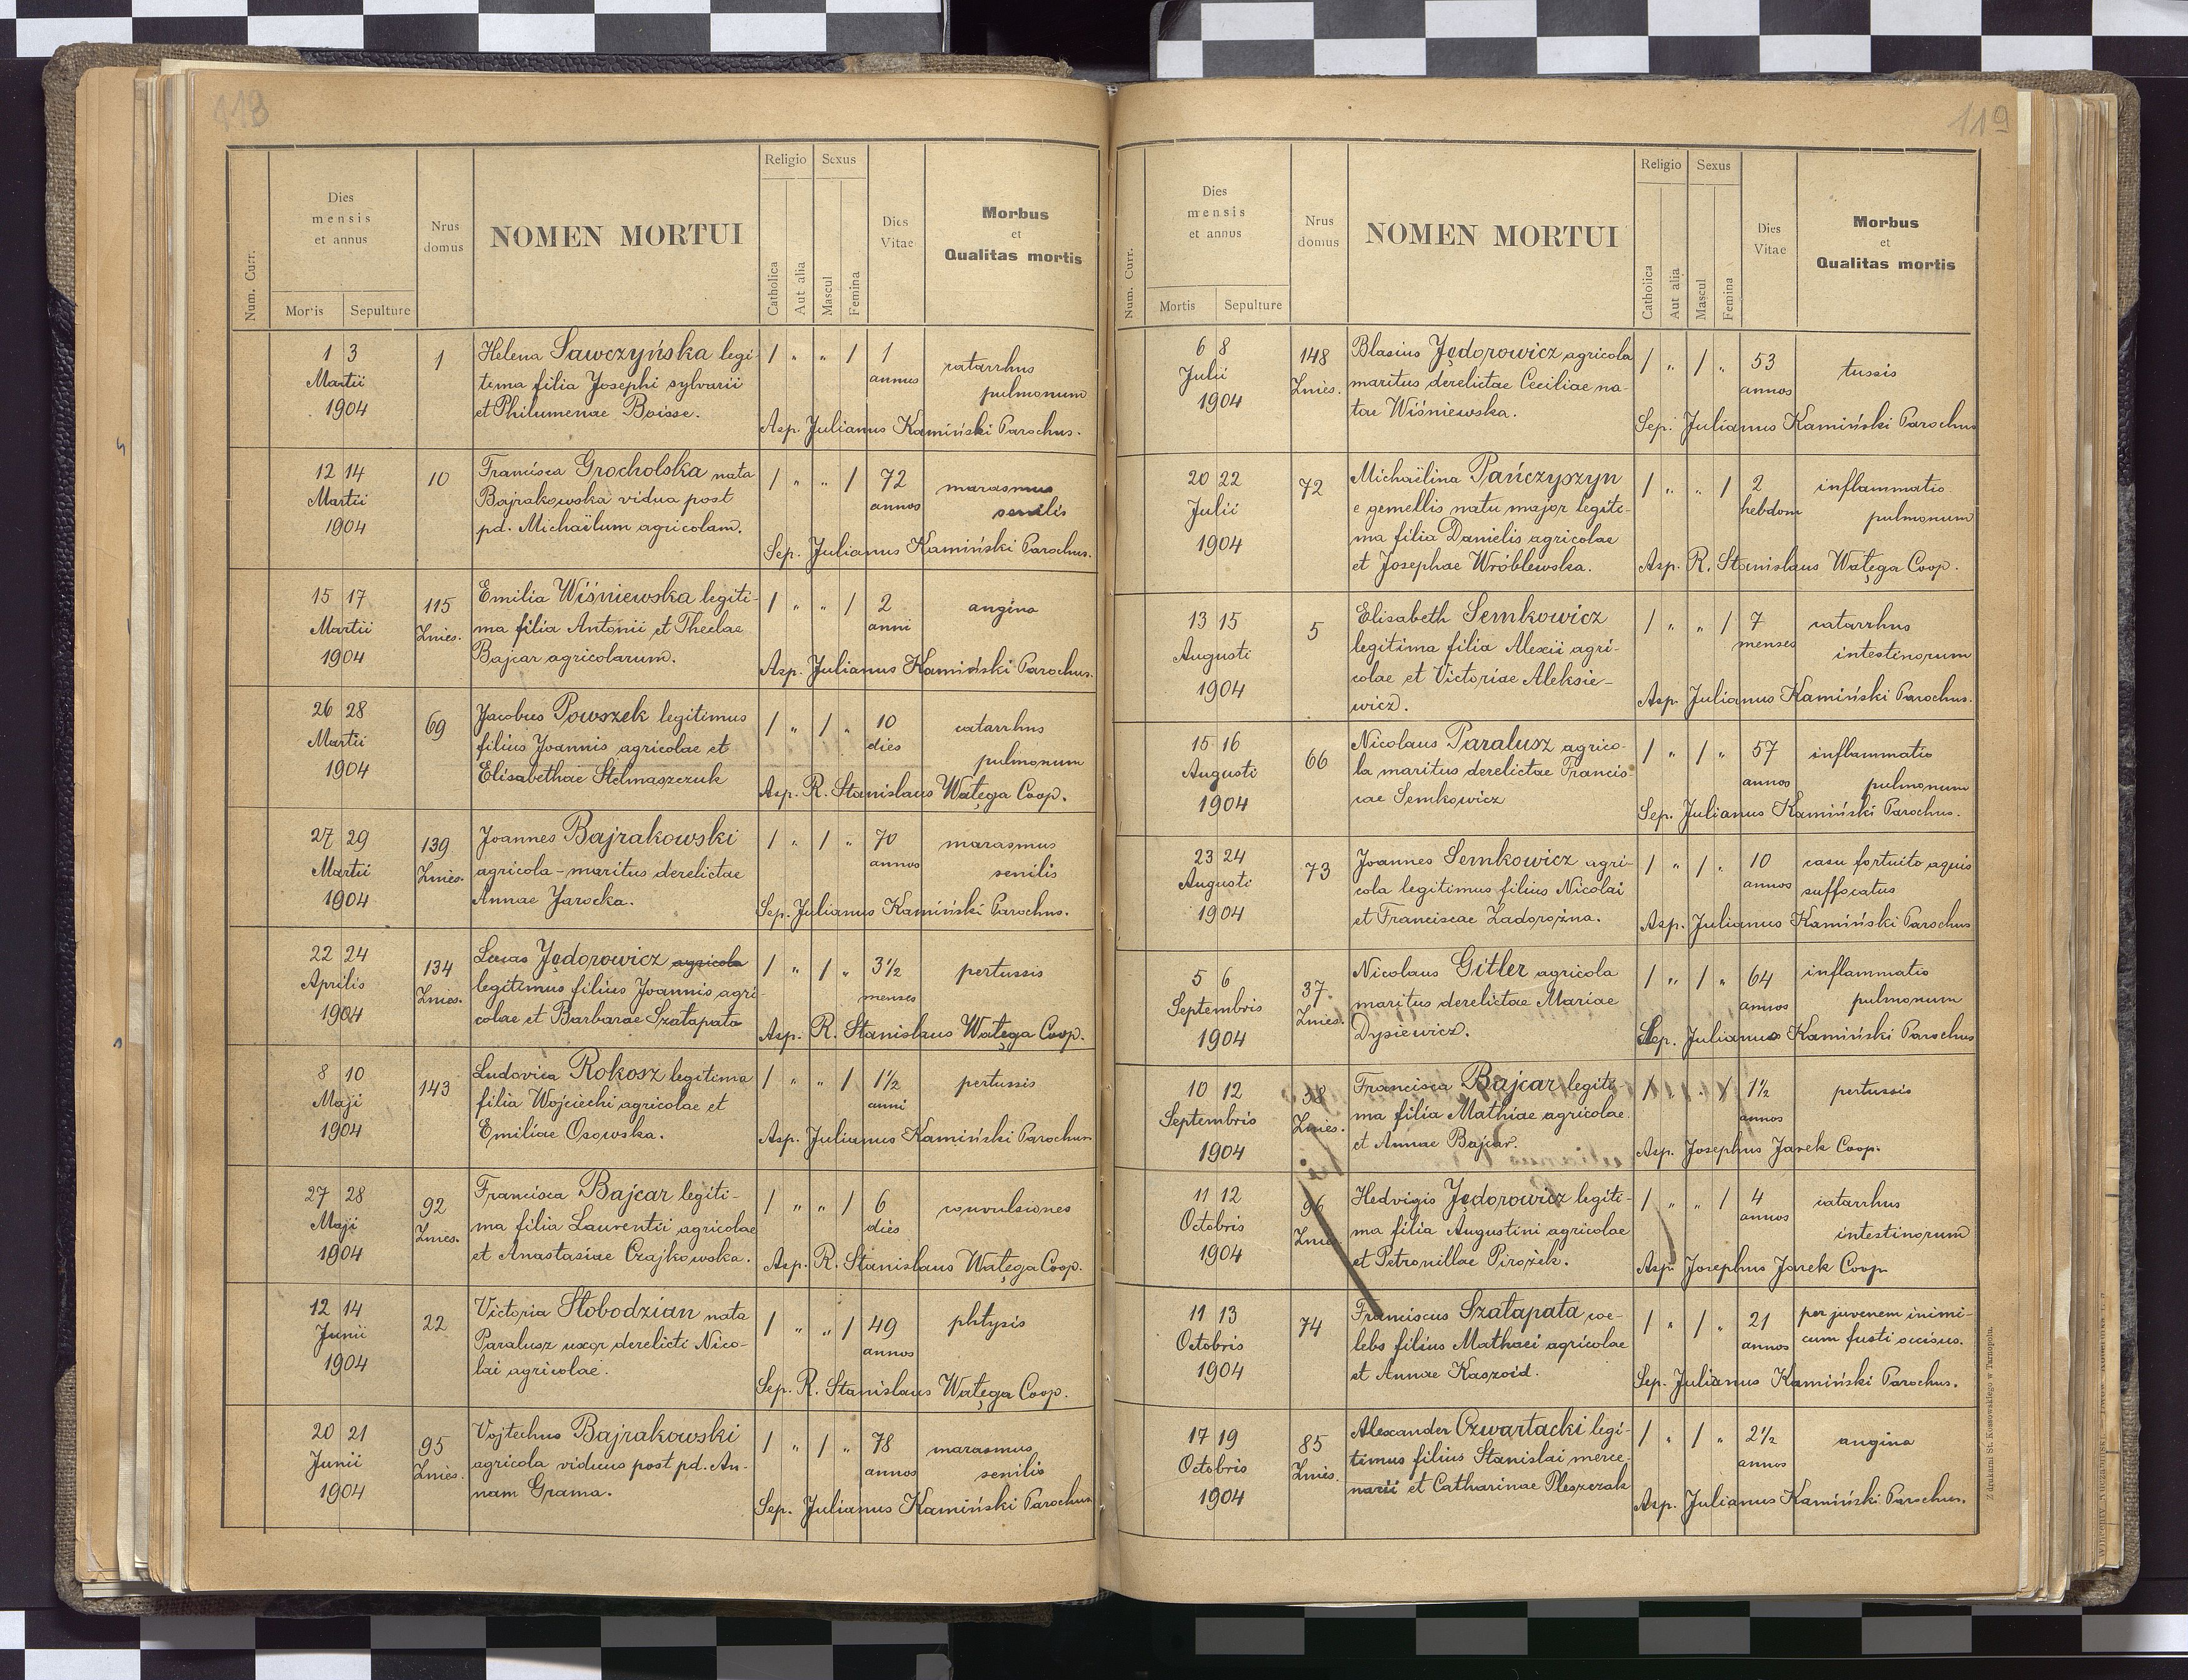 118
Num. Curr.
Dies
mensis
et annus
Mortis
Sepulture
Nrus
domus
NOMEN MORTUI
Religio
Sexus
Catholica
Aut alia
Mascul
Femina
Dies
Vitae
Morbus
et
Qualitas mortis
1 3
Martii
1904
1
Helena Sawczyńska legi-
tima filia Josephi sylvarii
et Philumenae Boisse.
1 " " 1
1
annus
catarrhus
pulmonum
Asp. Julianus Kamiński Parochus.
12 14
Martii
1904
10
Francisca Grocholska nata
Bajrakowska vidua post
pd. Michaëlum agricolam.
1 " " 1
72
annos
marasmus
senilis
Sep. Julianus Kamiński Parochus.
15 17
Martii
1904
115
Znies.
Emilia Wiśniewska legiti-
ma filia Antonii et Theclae
Bajcar agricolarum.
1 " " 1
2
anni
angina
Asp. Julianus Kamiński Parochus.
26 28
Martii
1904
69
Jacobus Powszek legitimus
filius Joannis agricolae et
Elisabethae Stelmaszczuk
1 " 1 "
10
dies
catarrhus
pulmonum
Asp. R. Stanislaus Watęga Coop.
27 29
Martii
1904
139
Znies.
Joannes Bajrakowski
agricola - maritus derelictae
Annae Jarocka.
1 " 1 "
70
annos
marasmus
senilis
Sep. Julianus Kamiński Parochus.
22 24
Aprilis
1904
134
Znies.
Lucas Jędorowicz agricola
legitimus filius Joannis agri-
colae et Barbarae Szatapata
1 " 1 "
3½
menses
pertussis
Asp. R. Stanislaus Watęga Coop.
8 10
Maji
1904
143
Ludovica Rokosz legitima
filia Wojciechi agricolae et
Emiliae Osowska.
1 " " 1
1½
anni
pertussis
Asp. Julianus Kamiński Parochus.
27 28
Maji
1904
92
Znies.
Francisca Bajcar legiti-
ma filia Laurentii agricolae
et Anastasiae Czajkowska.
1 " " 1
6
dies
convulsiones
Asp. R. Stanislaus Watęga Coop.
12 14
Junii
1904
22
Victoria Słobodzian nata
Paralusz uxor derelicti Nico-
lai agricolae.
1 " " 1
49
annos
phtysis
Sep. R. Stanislaus Watęga Coop.
20 21
Junii
1904
95
Znies.
Vojtechus Bajrakowski
agricola viduus post pd. An-
nam Grama.
1 " 1 "
78
annos
marasmus
senilis
Sep. Julianus Kamiński Parochus
119
Num. Curr.
Dies
mensis
et annus
Mortis
Sepulture
Nrus
domus
NOMEN MORTUI
Religio
Sexus
Catholica
Aut alia
Mascul
Femina
Dies
Vitae
Morbus
et
Qualitas mortis
6 8
Julii
1904
148
Znies.
Blasius Jędorowicz agricola
maritus derelictae Ceciliae na-
tae Wiśniewska.
1 " 1 "
53
annos
tussis
Sep. Julianus Kamiński Parochus
20 22
Julii
1904
72
Michaëlina Pańczyszyn
e gemellis natu major legiti-
ma filia Danielis agricolae
et Josephae Wróblewska.
1 " " 1
2
hebdom
inflammatio
pulmonum
Asp. R. Stanislaus Watęga Coop.
13 15
Augusti
1904
5
Elisabeth Semkowicz
legitima filia Alexii agri-
colae et Victoriae Aleksie-
wicz.
1 " " 1
7
menses
catarrhus
intestinorum
Asp. Julianus Kamiński Parochus.
15 16
Augusti
1904
66
Nicolaus Paralusz agrico-
la maritus derelictae Francis-
cae Semkowicz
1 " 1 "
57
annos
inflammatio
pulmonum
Sep. Julianus Kamiński Parochus.
23 24
Augusti
1904
73
Joannes Semkowicz agri-
cola legitimus filius Nicolai
et Franciscae Zadorożna.
1 " 1 "
10
annos
casu fortuito aquis
suffocatus
Asp. Julianus Kamiński Parochus
5 6
Septembris
1904
37.
Znies.
Nicolaus Gitler agricola
maritus derelictae Mariae
Dysiewicz.
1 " 1 "
64
annos
inflammatio
pulmonum
Sep. Julianus Kamiński Parochus
10 12
Septembris
1904
38
Znies.
Francisca Bajcar legiti-
ma filia Mathiae agricolae
et Annae Bajcar.
1 " " 1
1½
annos
pertussis
Asp. Josephus Jarek Coop.
11 12
Octobris
1904
96
Znies.
Hedvigis Jędorowicz legiti-
ma filia Augustini agricolae
et Petronillae Pirożek.
1 " " 1
4
annos
catarrhus
intestinorum
Asp. Josephus Jarek Coop
11 13
Octobris
1904
74
Franciscus Szatapata coe-
lebs filius Mathaei agricolae
et Annae Kaszoid.
1 " 1 "
21
annos
per juvenem inimi-
cum fusti occisus.
Sep. Julianus Kamiński Parochus.
17 19
Octobris
1904
85
Znies.
Alexander Czwartacki legi-
timus filius Stanislai merce-
narii et Catharinae Pleszczak
1 " 1 "
2½
annos
angina
Asp. Julianus Kamiński Parochus.
Z drukarni St. Kossowskiego w Tarnopolu.